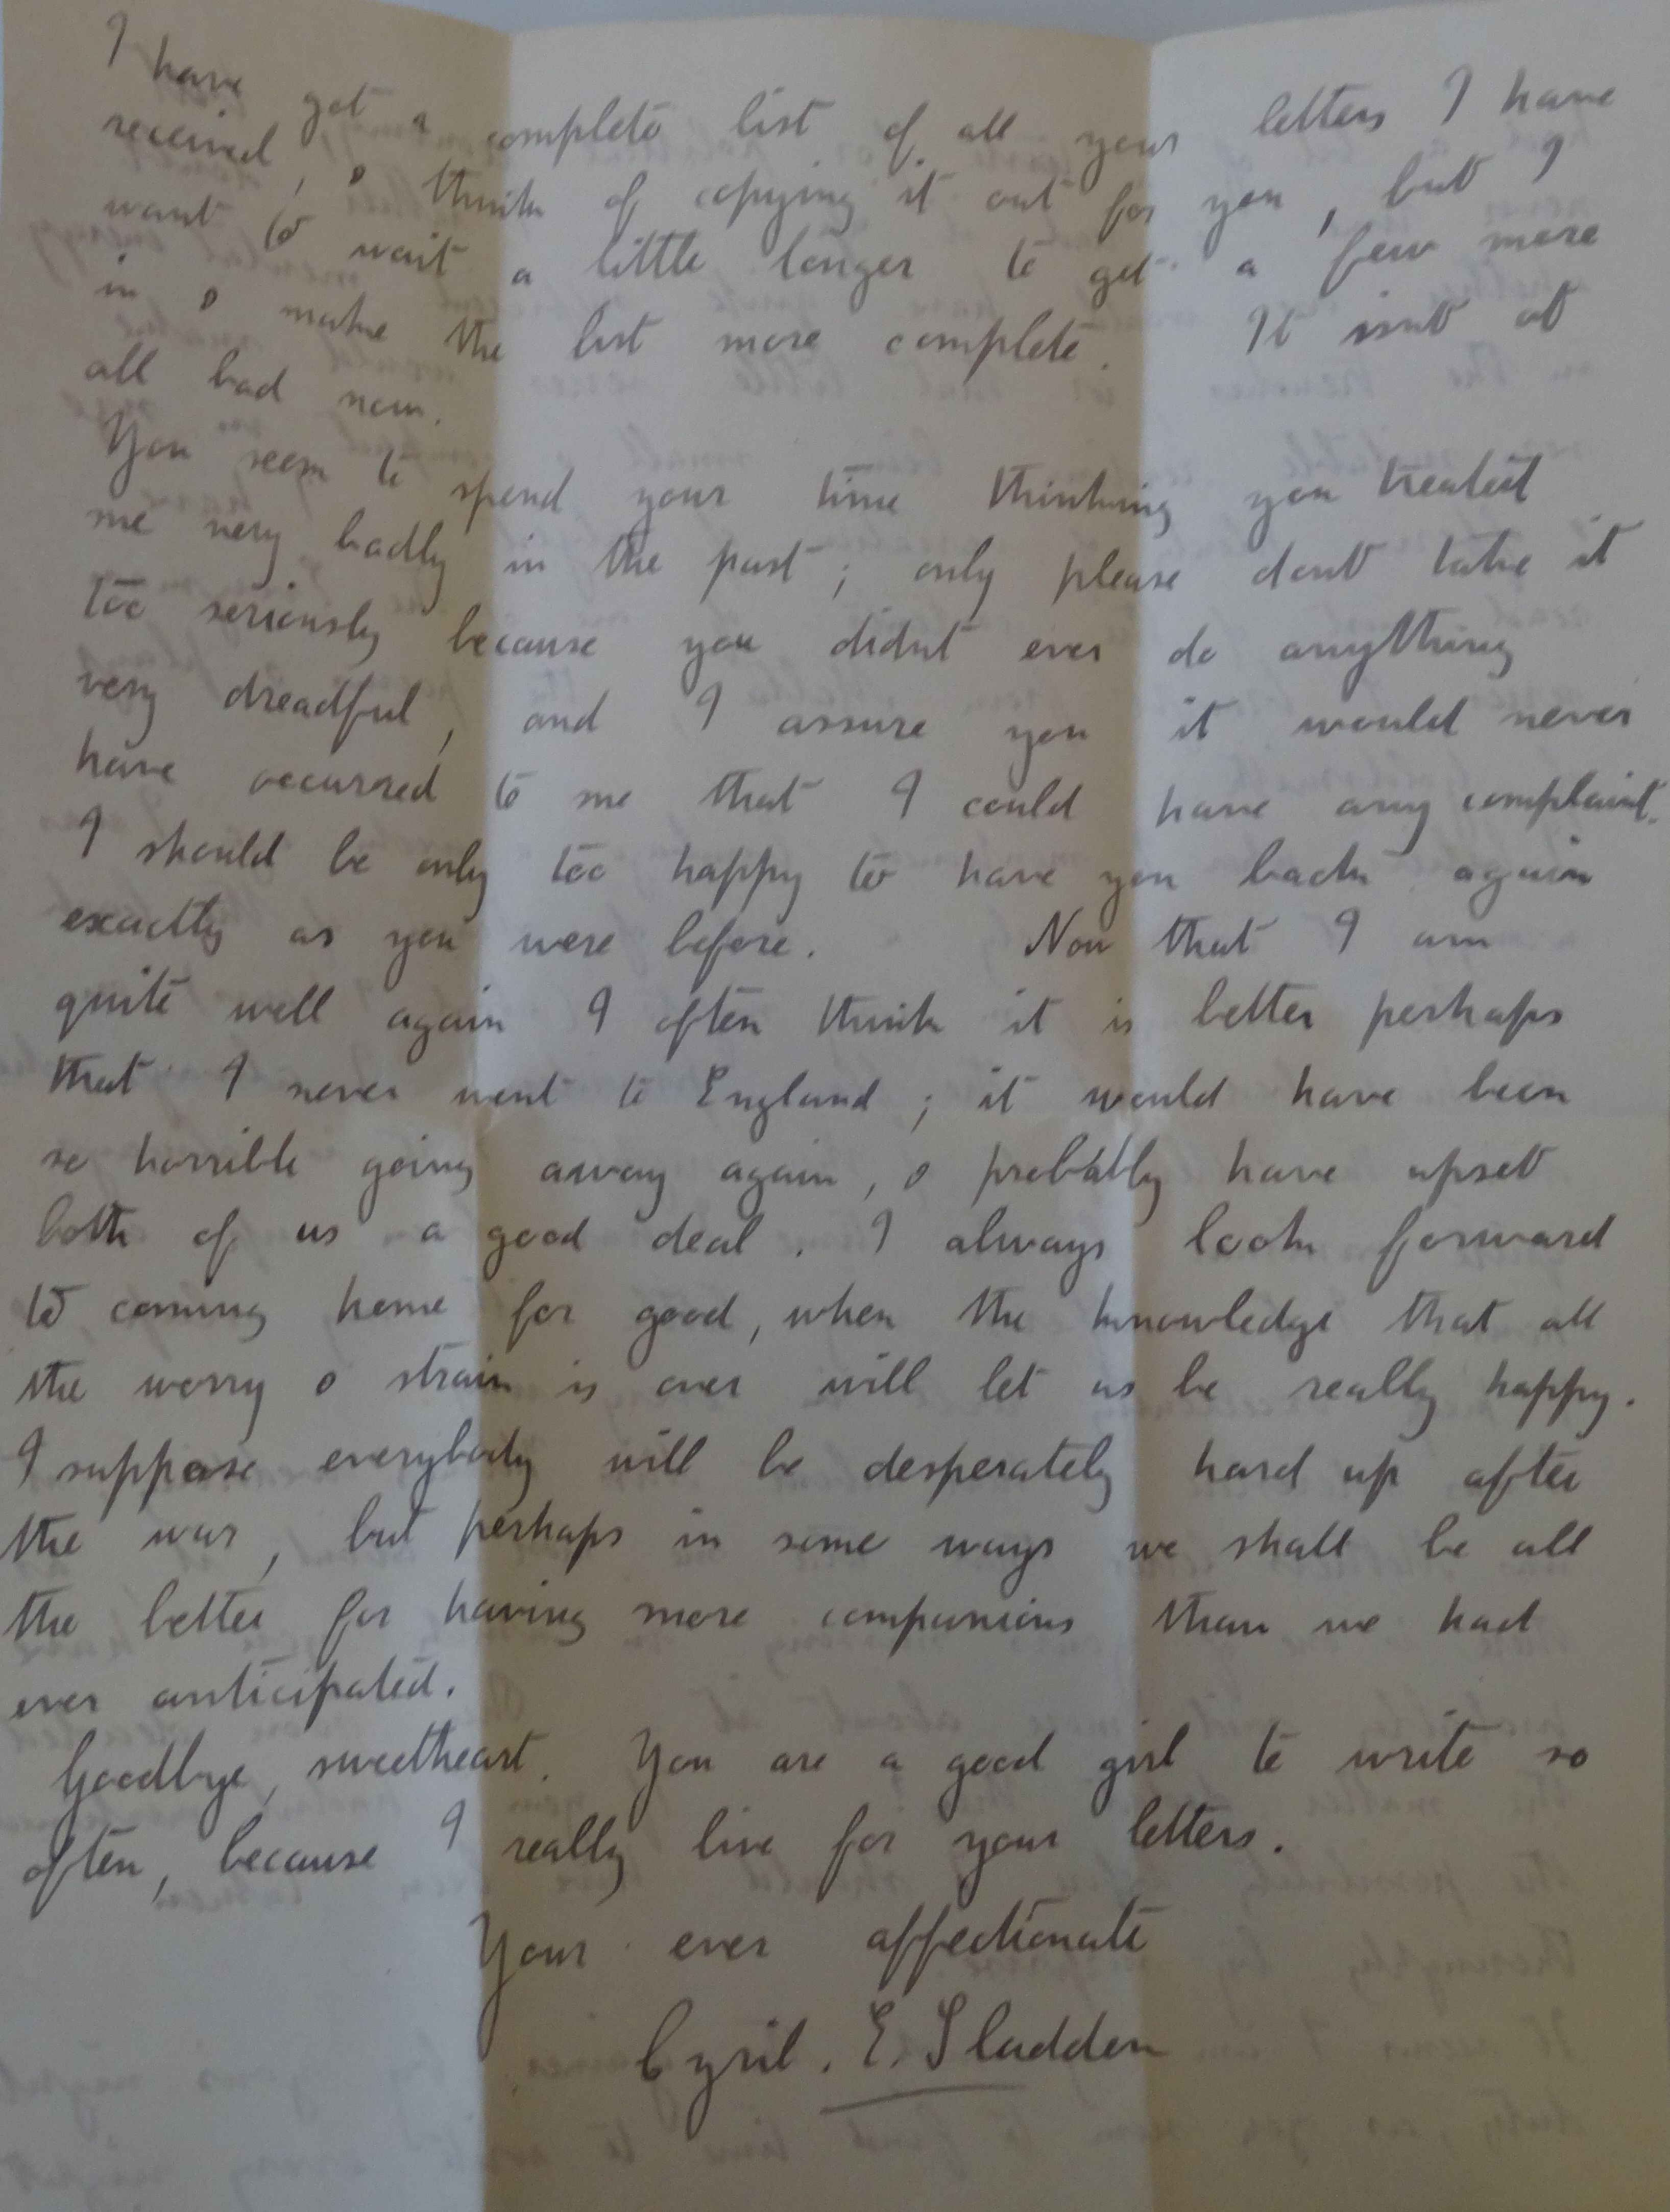 I have got a complete list of all your letters I have
received, & think of copying it out for you, but I
want to wait a little longer to get a few more
in & make the list more complete. It isnt at
all bad now.
You seem to spend your time thinking you treated
me very badly in the past; only please dont take it
too seriously because you didnt ever do anything
very dreadful, and I assure you it would never
have occurred to me that I could have any complaint.
I should be only too happy to have you back again
exactly as you were before. Now that I am
quite well again I often think it is better perhaps
that I never went to England; it would have been
so horrible going away again, & probably have upset
both of us a good deal. I always look forward
to coming home for good, when the knowledge that all
the worry & strain is over will let us be really happy.
I suppose everybody will be desperately hard up after
the war, but perhaps in some ways we shall be all
the better for having more companions than we had
ever anticipated.
Goodbye, sweetheart. You are a good girl to write so
often, because I really live for your letters.
Your ever affectionate
Cyril. E. Sladden